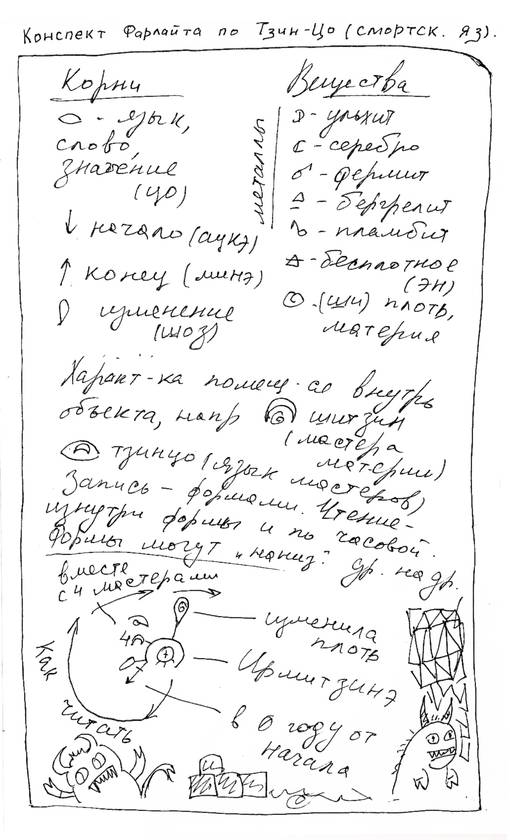 Конспект Фарлайта по Тзин-Цо (смортск. яз).
Корни
- язык,
слово,
значение
(цо)
начало (аукэ)
конец (минэ)
изменение
(шоз)
Вещества
металлы
- ульхит
- серебро
- фермит
- бергрелит
- пламбит
- бесплотное
(эн)
(ши) плоть,
материя
Характ-ка помещ-ся внутрь
объекта, напр шитзин
(мастера
материи)
тзинцо (язык мастеров)
Запись - формами. Чтение-
изнутри формы и по часовой.
Формы могут "наниз". др. на др.
вместе
с 4 мастерами
4
0
Как
читать
изменила
плоть
Ирмитзинэ
в 0 году от
начала